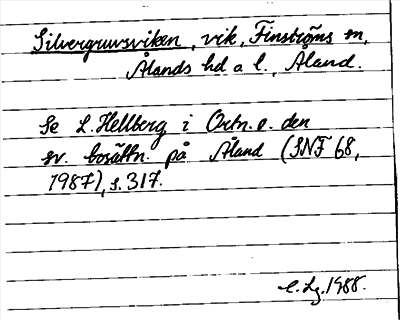 Silvergruvsviken, vik, Finströms sn,
Ålands hd a l., Åland.
Se L. Hellberg i Ortn. o. den
sv. bosättn. på Åland (SNF 68,
1987), s. 317.
1988.